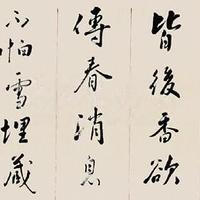 皆後香欲
傳春消息
不怕雪埋藏